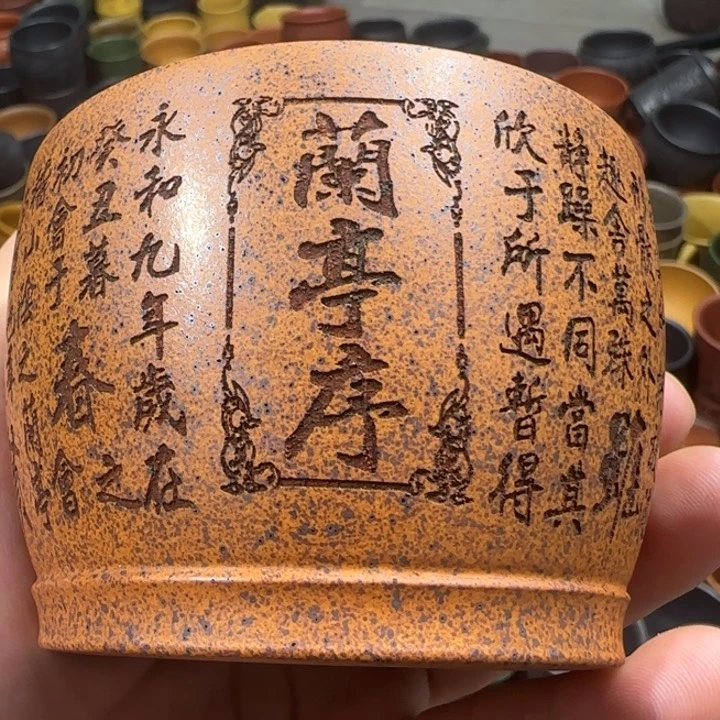 骸之外
趣舍萬殊
静躁不同當其
欣于所遇暫得
蘭亭序
永和九年歲在
癸丑暮春之
初會于會
山陰之